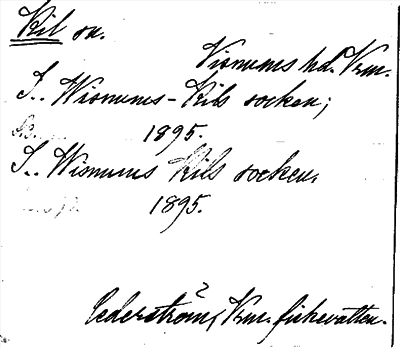 Kil sn.
Visnums hd. Vrm.
I.. Wisnums-Kils socken;
1895.
I.. Wisnums Kils socken.
1895.
Cederström, Vrm. fiskevatten.